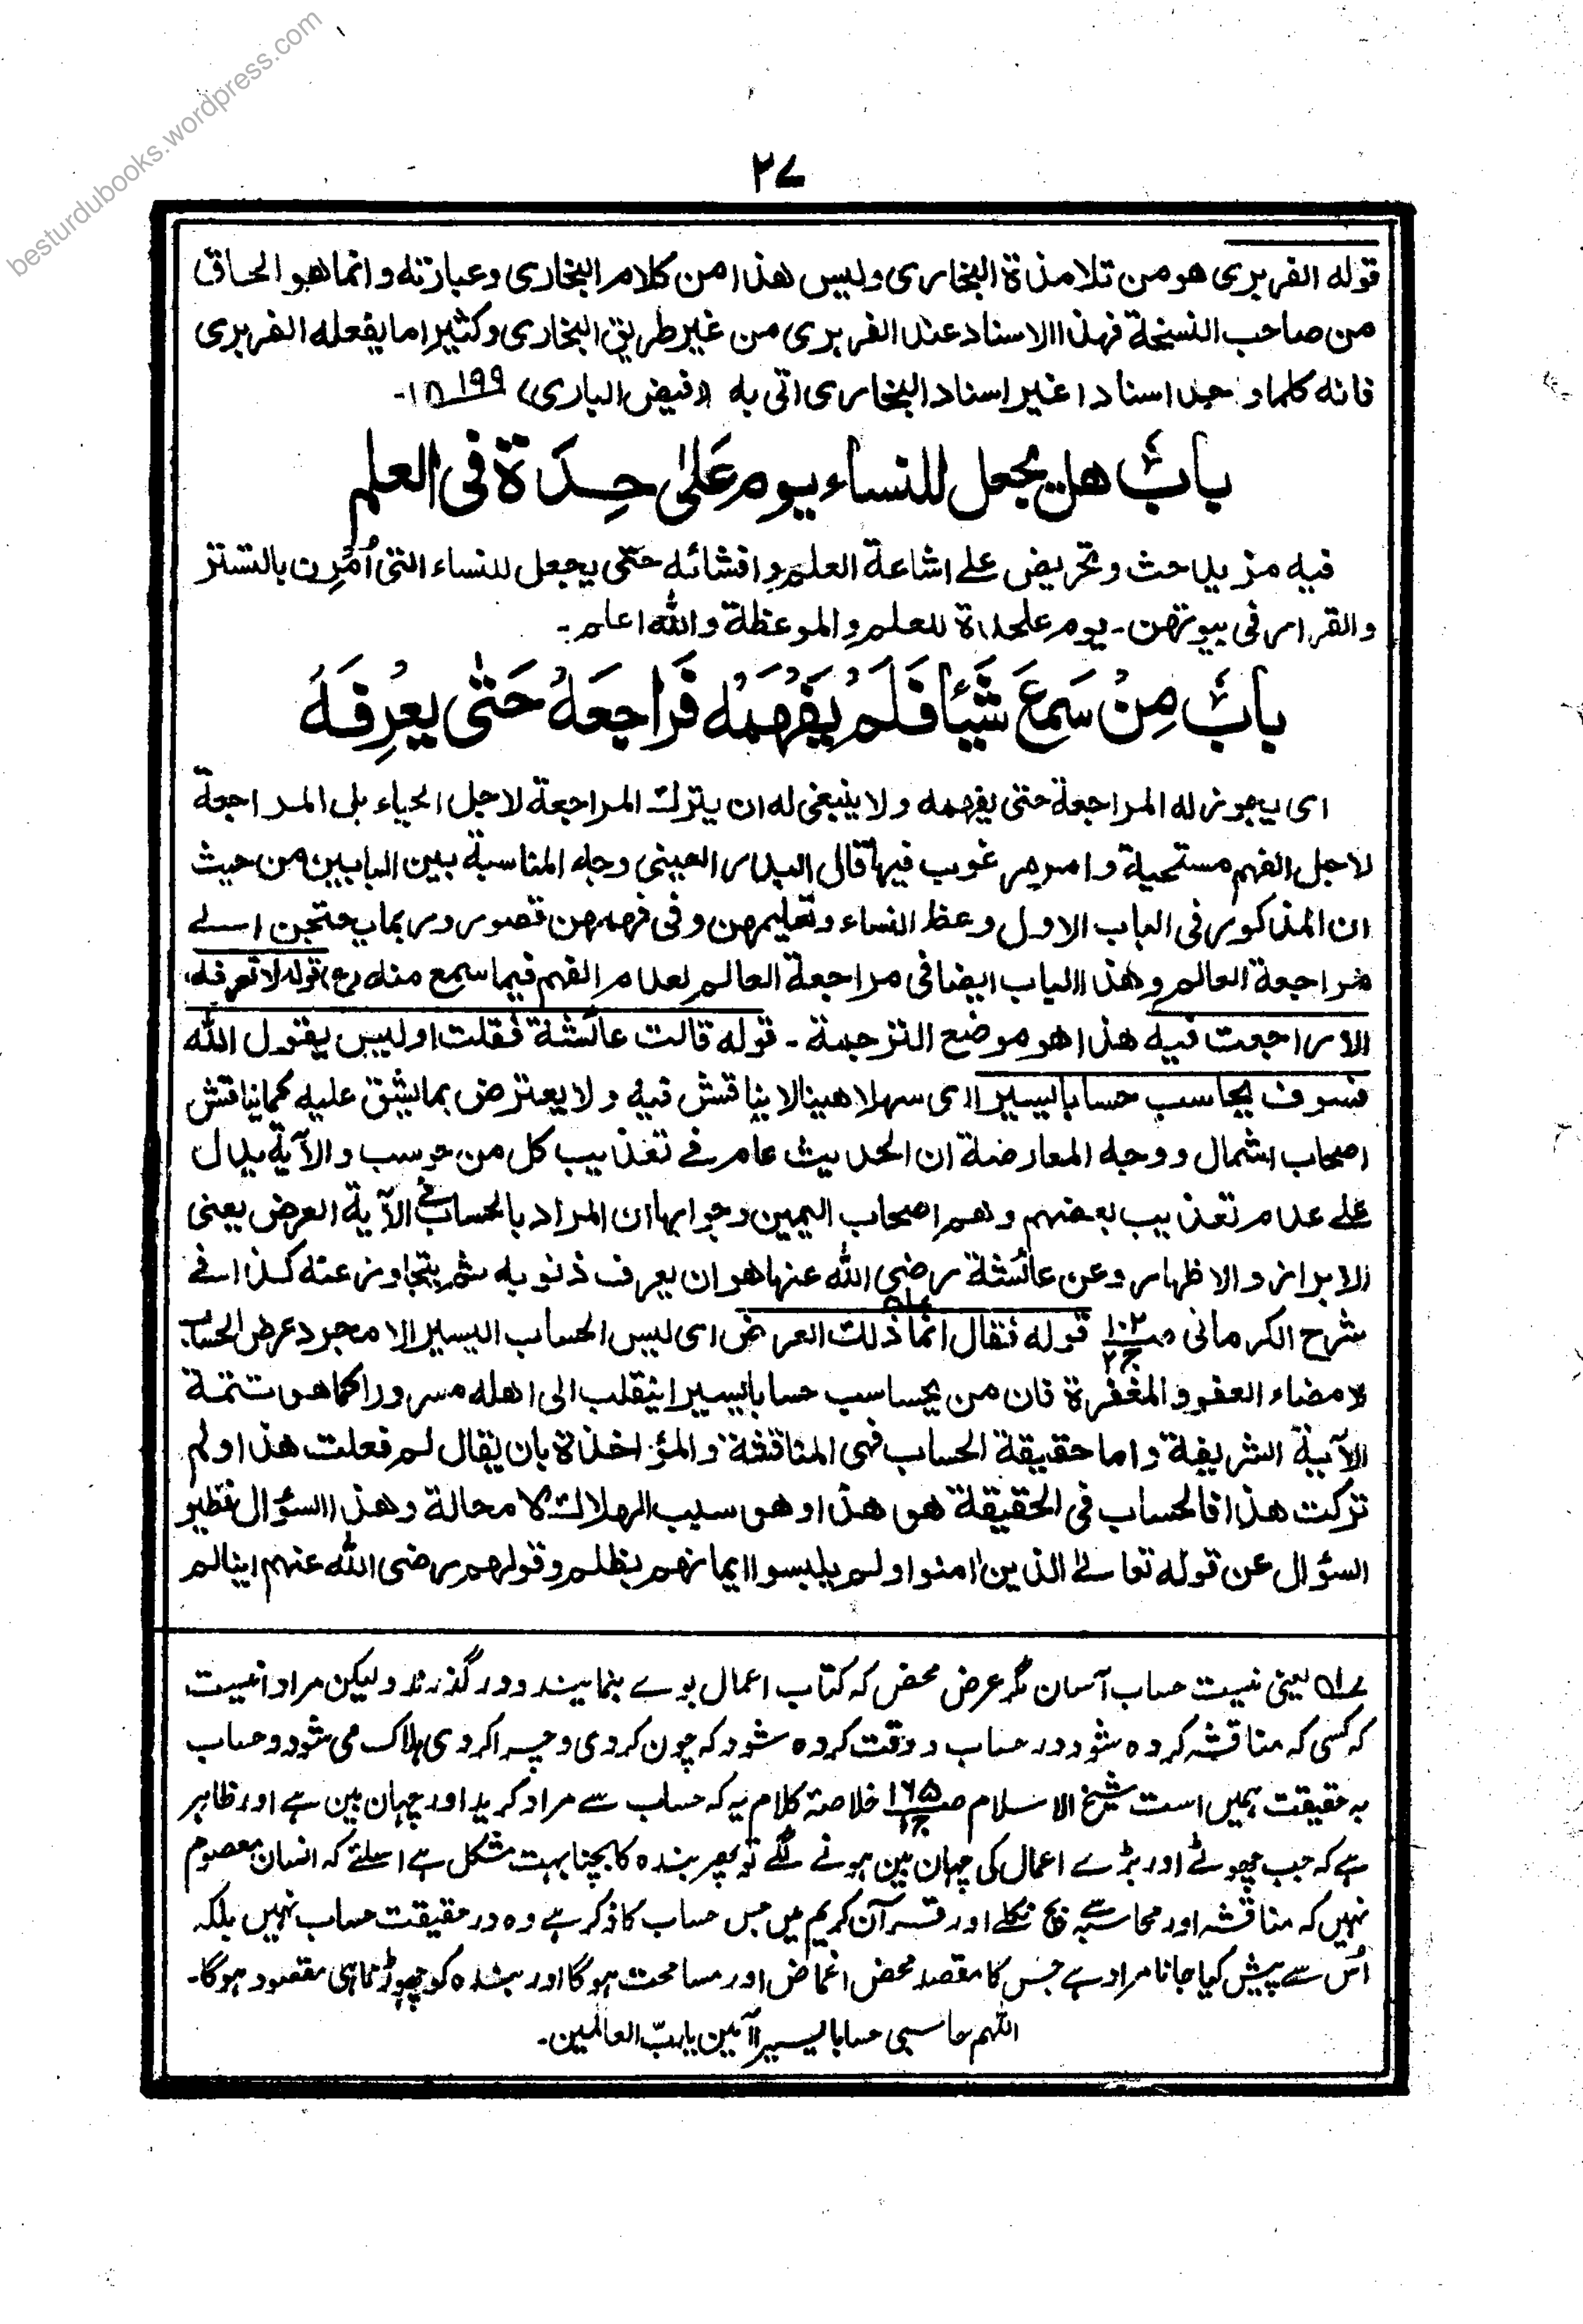 besturdubooks.wordpress.com
۲۷
قوله الفربری هو من تلامذة البخاری ولیس هذا من کلام البخاری وعبارته وانما هو الحاق
من صاحب النسخة فهذا الاسناد عند الفربری من غیر طریق البخاری وکثیرا ما یفعله الفربری
فانه کلما وجد اسنادا غیر اسناد البخاری اتی به (فیض الباری) ۱۹۹
بابٌ هل یجعل للنساء یوم عَلیٰ حِدَة فی العلم
فیه مزید حث وتحریض علے اشاعة العلم وافشائه حتی یجعل للنساء التی اُمِرن بالتستر
والقرار فی بیوتهن ـ یوم علحدة للعلم والموعظة والله اعلم ـ
بابٌ مِنْ سَمِعَ شَیْئًا فَلَمْ یَفْهَمْهُ فَرَاجَعَهُ حَتّٰی یعْرِفَهُ
ای یجوز له المراجعة حتی یفهمه ولا ینبغی له ان یترك المراجعة لاجل الحیاء بل المراجعة
لاجل الفهم مستحبة وامر مرغوب فیها قال البدر العینی وجه المناسبة بین البابین من حیث
ان المذکور فی الباب الاول وعظ النساء وتعلیمهن وفی فهمهن قصور وربما یحتجن اسلے
مراجعة العالم وهذا الباب ایضا فی مراجعة العالم لعدم الفهم فیما سمع منه (ع) قوله لا تعرفه
الا راجعت فیه هذا هو موضع الترجمة ـ قوله قالت عائشة فقلت اولیس یقول الله
فسوف یحاسب حسابا یسیرا ای سهلا هینا لا یناقش فیه ولا یعترض بما یشق علیه کما یناقش
اصحاب الشمال ووجه المعارضة ان الحدیث عام فے تعذیب کل من حوسب والآیة یدل
علے عدم تعذیب بعضهم وهم اصحاب الیمین وجوابها ان المراد بالحساب فے الآیة العرض یعنی
الابراز والاظهار وعن عائشة رضی الله عنها هو ان یعرف ذنوبه ثم یتجاوز عنه کذا فے
شرح الکرمانی ص۱۰۲ ج۲ قوله فقال انما ذلك العرض ای لیس الحساب الیسیر الا مجرد عرض الحساب
لامضاء العفو والمغفرة فان من یحاسب حسابا یسیرا ینقلب الی اهله مسرورا کما هو تتمة
الآیة الشریفة واما حقیقة الحساب فهی المناقشة والمؤاخذة بان یقال لم فعلت هذا ولم
ترکت هذا فالحساب فی الحقیقة هو هذا وهو سبب الهلاك لا محالة وهذا السؤال نظیر
السؤال عن قوله تعالے الذین اٰمنوا ولم یلبسوا ایمانهم بظلم وقولهم رضی الله عنهم اینا لم
یعنی نیست حساب آسان مگر عرض محض کہ کتاب اعمال بوے بنمایند و در گذرند ولیکن مراد اینست
کہ کسی کہ مناقشہ کردہ شود در حساب و دقت کردہ شود کہ چون کردی و چرا کردی ہلاک می شود و حساب
بہ حقیقت ہمیں است شیخ الاسلام ص۱۶۵ ج۱ خلاصۂ کلام یہ کہ حساب سے مراد کرید اور چہان بین ہے اور ظاہر
ہے کہ جب چھوٹے اور بڑے اعمال کی چہان بین ہونے لگے تو پھر بندہ کا بچنا بہت مشکل ہے اسلئے کہ انسان معصوم
نہیں کہ مناقشہ اور محاسبہ سے بچ نکلے اور قرآن کریم میں جس حساب کا ذکر ہے وہ در حقیقت حساب نہیں بلکہ
اُس سے پیش کیا جانا مراد ہے جس کا مقصد محض اغماض اور مسامحت ہوگا اور بندہ کو چھوڑنا ہی مقصود ہوگا۔
اللہم حاسبی حسابا یسیرا آمین یا ربّ العالمین۔